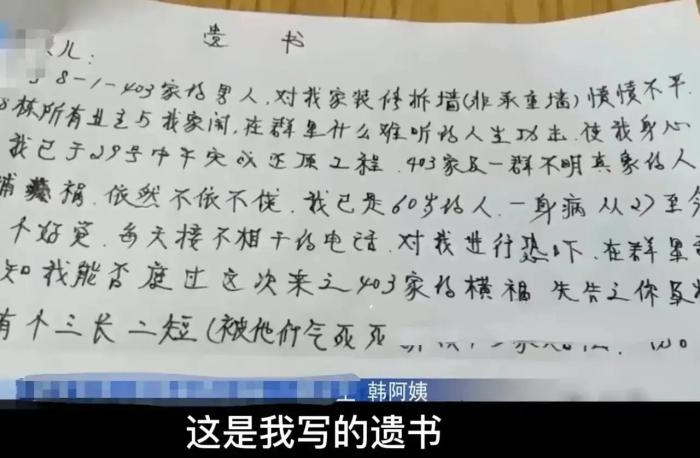 遗 书
儿：
8-1-403家的男人，对我家装修拆墙(非承重墙)愤愤不平.
栋所有业主与我家闹，在群里什么难听的人生功击，使我身心
我已于29号中午完成还原工程，403家及一群不明真象的人
依然不依不侥，我已是60岁的人，一身病从27至今
个好觉，每天接不相干的电话，对我进行恐吓，在群里
知我能否度过这次来之403家的横福 先告之你及
有个三长二短(被他们气死
韩阿姨
这是我写的遗书